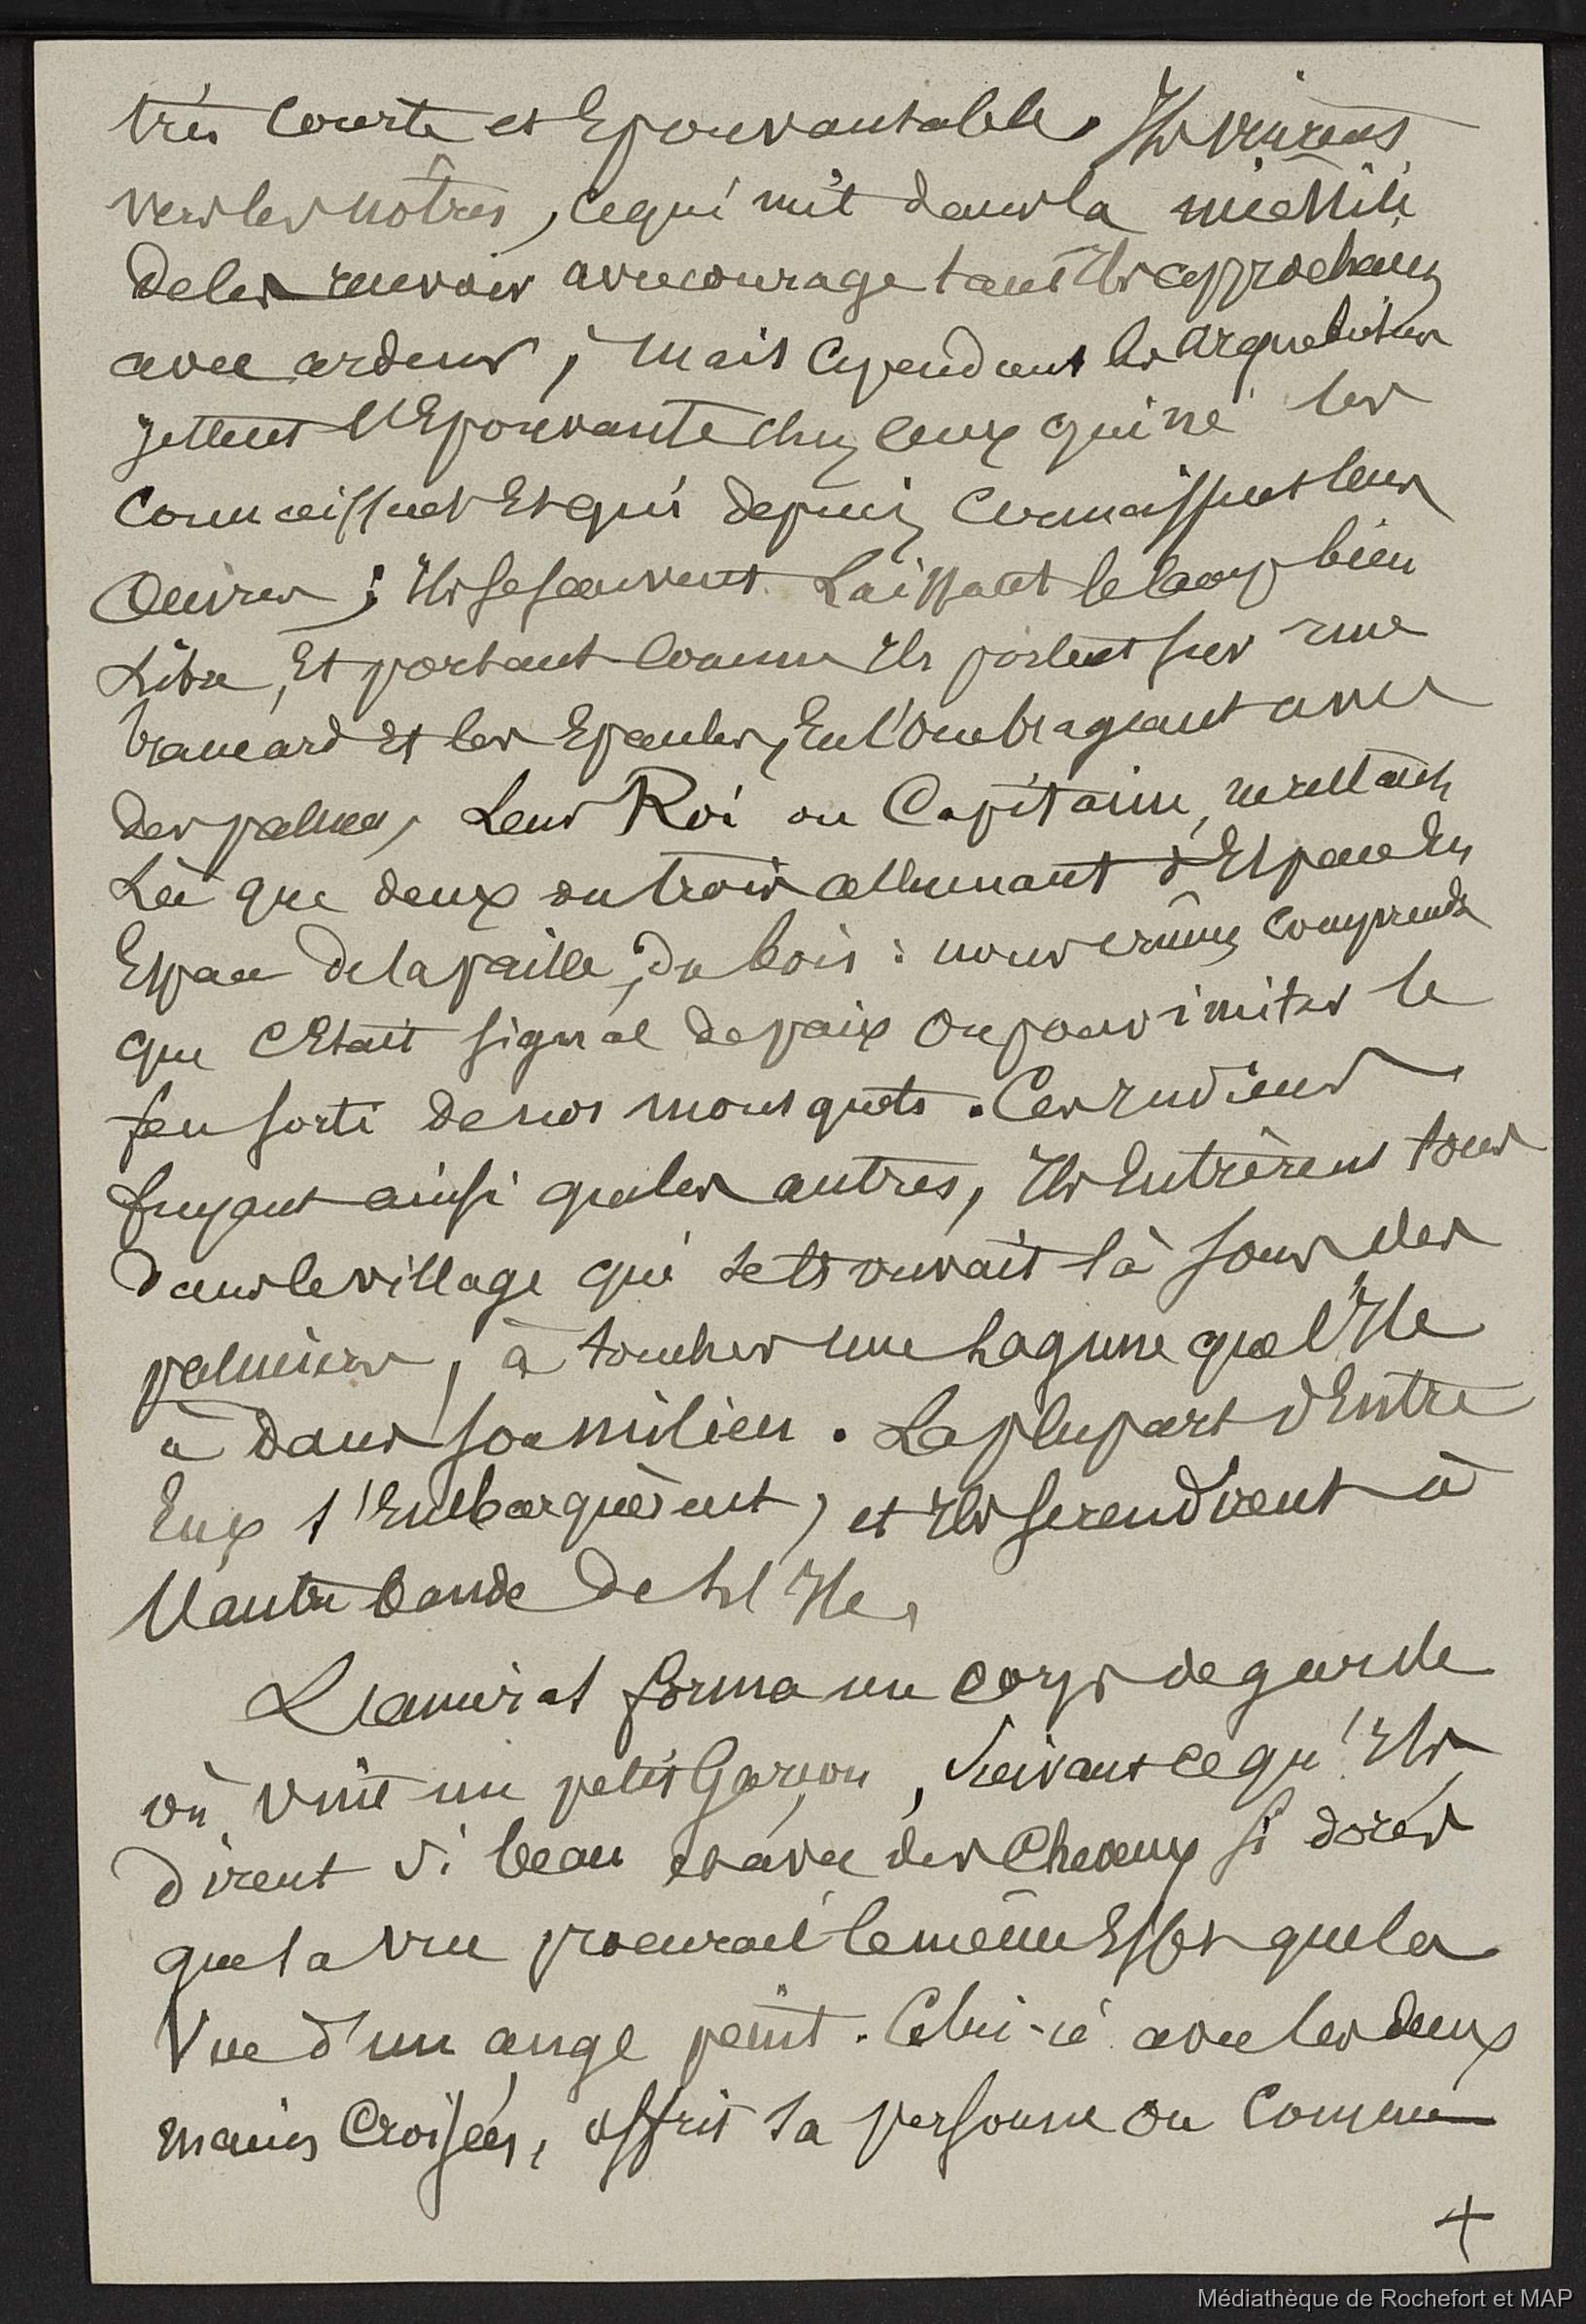 très courte et Epouvantable. Ils vinrent
vers les notres, ce qui mit dans la
de les revoir avec courage tant Ils approchaienz
avec ardeur, mais cependant les arquebuses
jettent l'Epouvante chez ceux qui ne les
connaissent Et qui depuis connaissent leurs
Œuvres ; Ils se sauvent Laissant le camp bien
Libre, Et portant comme Ils portent sur une
brancard Et les Epaules, En l'ombrageant avec
des palmes, Leur Roi ou Capitaine,
Là que deux ou trois allumant d'Espace En
Espace de la paille, du bois : nous crûmes comprendre
que c'Etait signal de paix ou pour imiter le
feu sorti de nos mousquets. Ces Indiens
fuyant ainsi que les autres, Ils Entrèrent tous
dans le village qui se trouvait là sous des
palmiers, à toucher une Lagune que l'Ile
à dans son milieu. La plupart d'Entre
Eux s'Embarquèrent, et Ils se rendirent à
l'autre bande de l'Ile,
L'amiral forma un corps de garde
où vint un petit Garçon, suivant ce qu'Ils
dirent si beau et avec des cheveux si dorés
que sa vue procurait le même Effet que la
Vue d'un ange peint. Celui-ci avec les deux
mains Croisées, offrit sa personne ou comme
+
Médiathèque de Rochefort et MAP